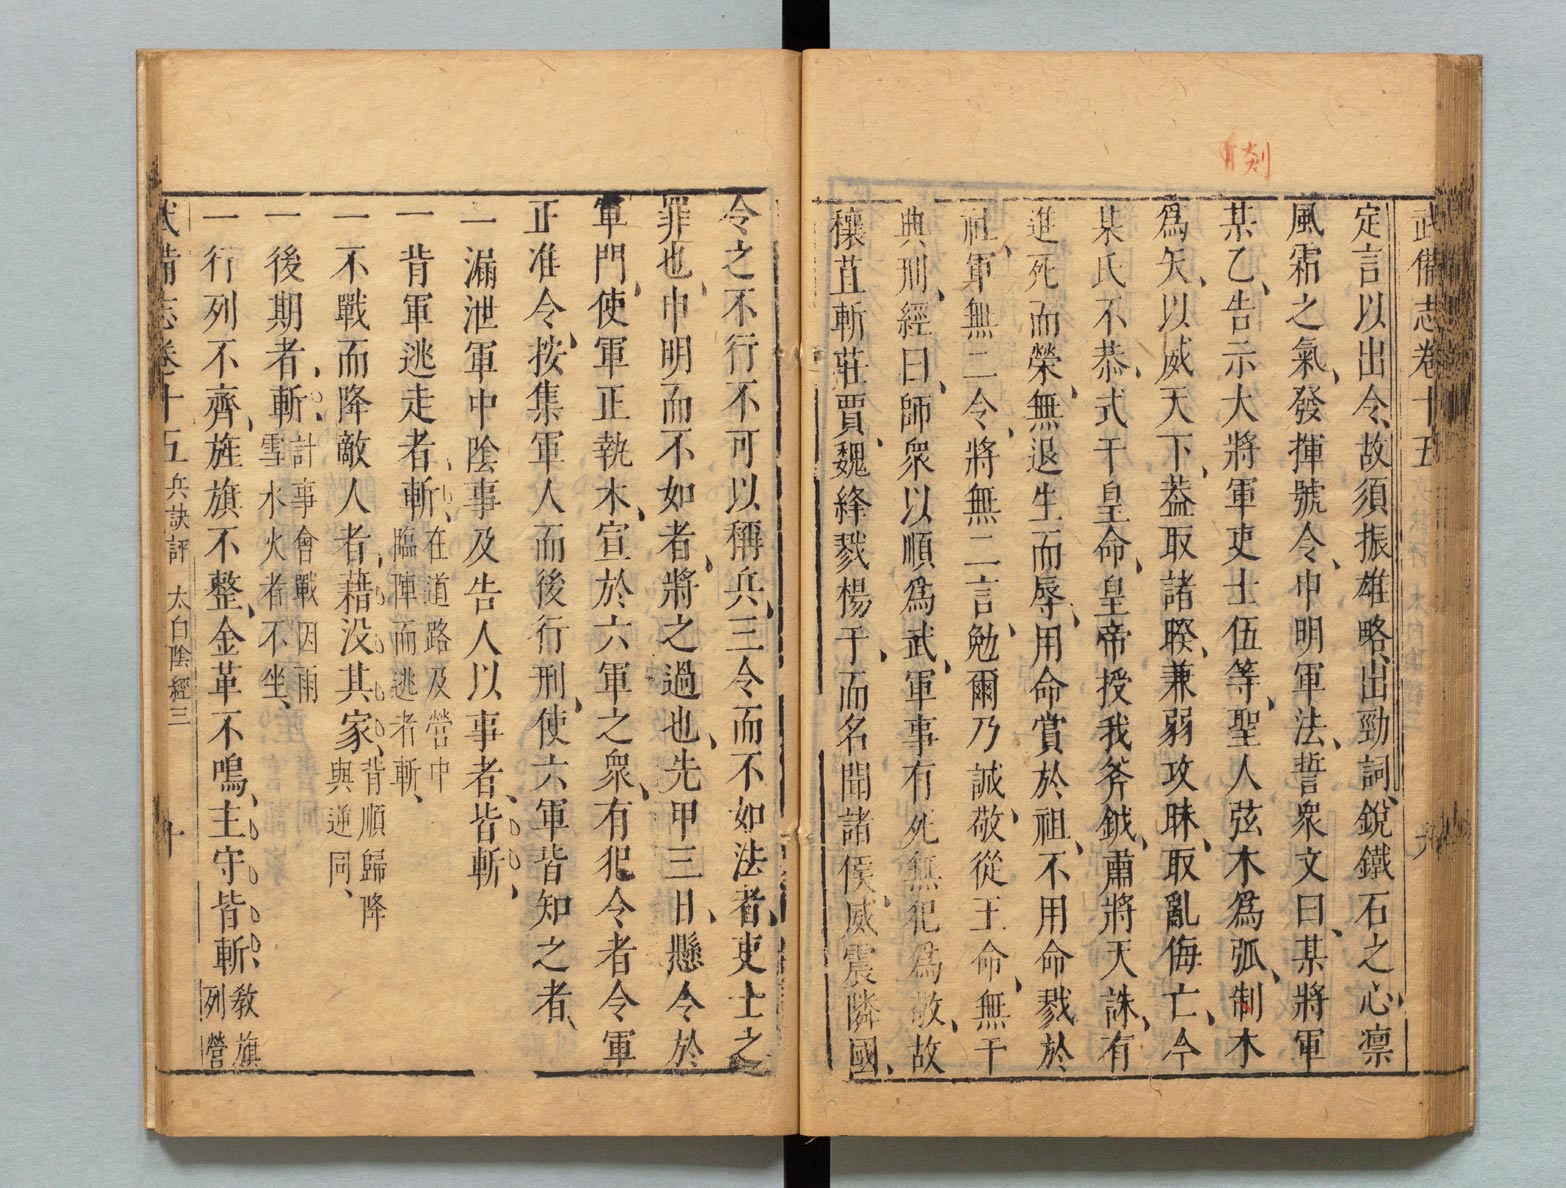 剡
武備志卷十五
九
定言以出令、故須振雄略、出勁詞、銳鐵石之心、凛
風霜之氣、發揮號令、申明軍法、誓衆文曰、某將軍
某乙、告示大將軍吏士伍等、聖人弦木爲弧、制木
爲矢、以威天下、葢取諸睽、兼弱攻昧、取亂侮亡、今
某氏不恭、式干皇命、皇帝授我斧鉞、肅將天誅、有
進死而榮、無退生而辱、用命賞於祖、不用命戮於
社、軍無二令、將無二言、勉爾乃誠、敬從王命、無干
典刑、經曰、師衆以順爲武、軍事有死無犯爲敬、故
穰苴斬莊賈、魏絳戮楊干、而名聞諸侯、威震隣國、
令之不行、不可以稱兵、三令而不如法者、吏士之
罪也、申明而不如者、將之過也、先甲三日、懸令於
軍門、使軍正執木、宣於六軍之衆、有犯令者、令軍
正准令、按集軍人而後行刑、使六軍皆知之者、
一漏泄軍中陰事及告人以事者、皆斬、
一背軍逃走者、斬、在道路及營中
臨陣而逃者斬、
一不戰而降敵人者、藉没其家、背順歸降
與逆同、
一後期者、斬、計事會戰因雨
雪水火者不坐、
一行列不齊、旌旗不整、金革不鳴、主守皆斬、敎旗
列營
武備志卷十五 兵訣評 太白陰經三
十